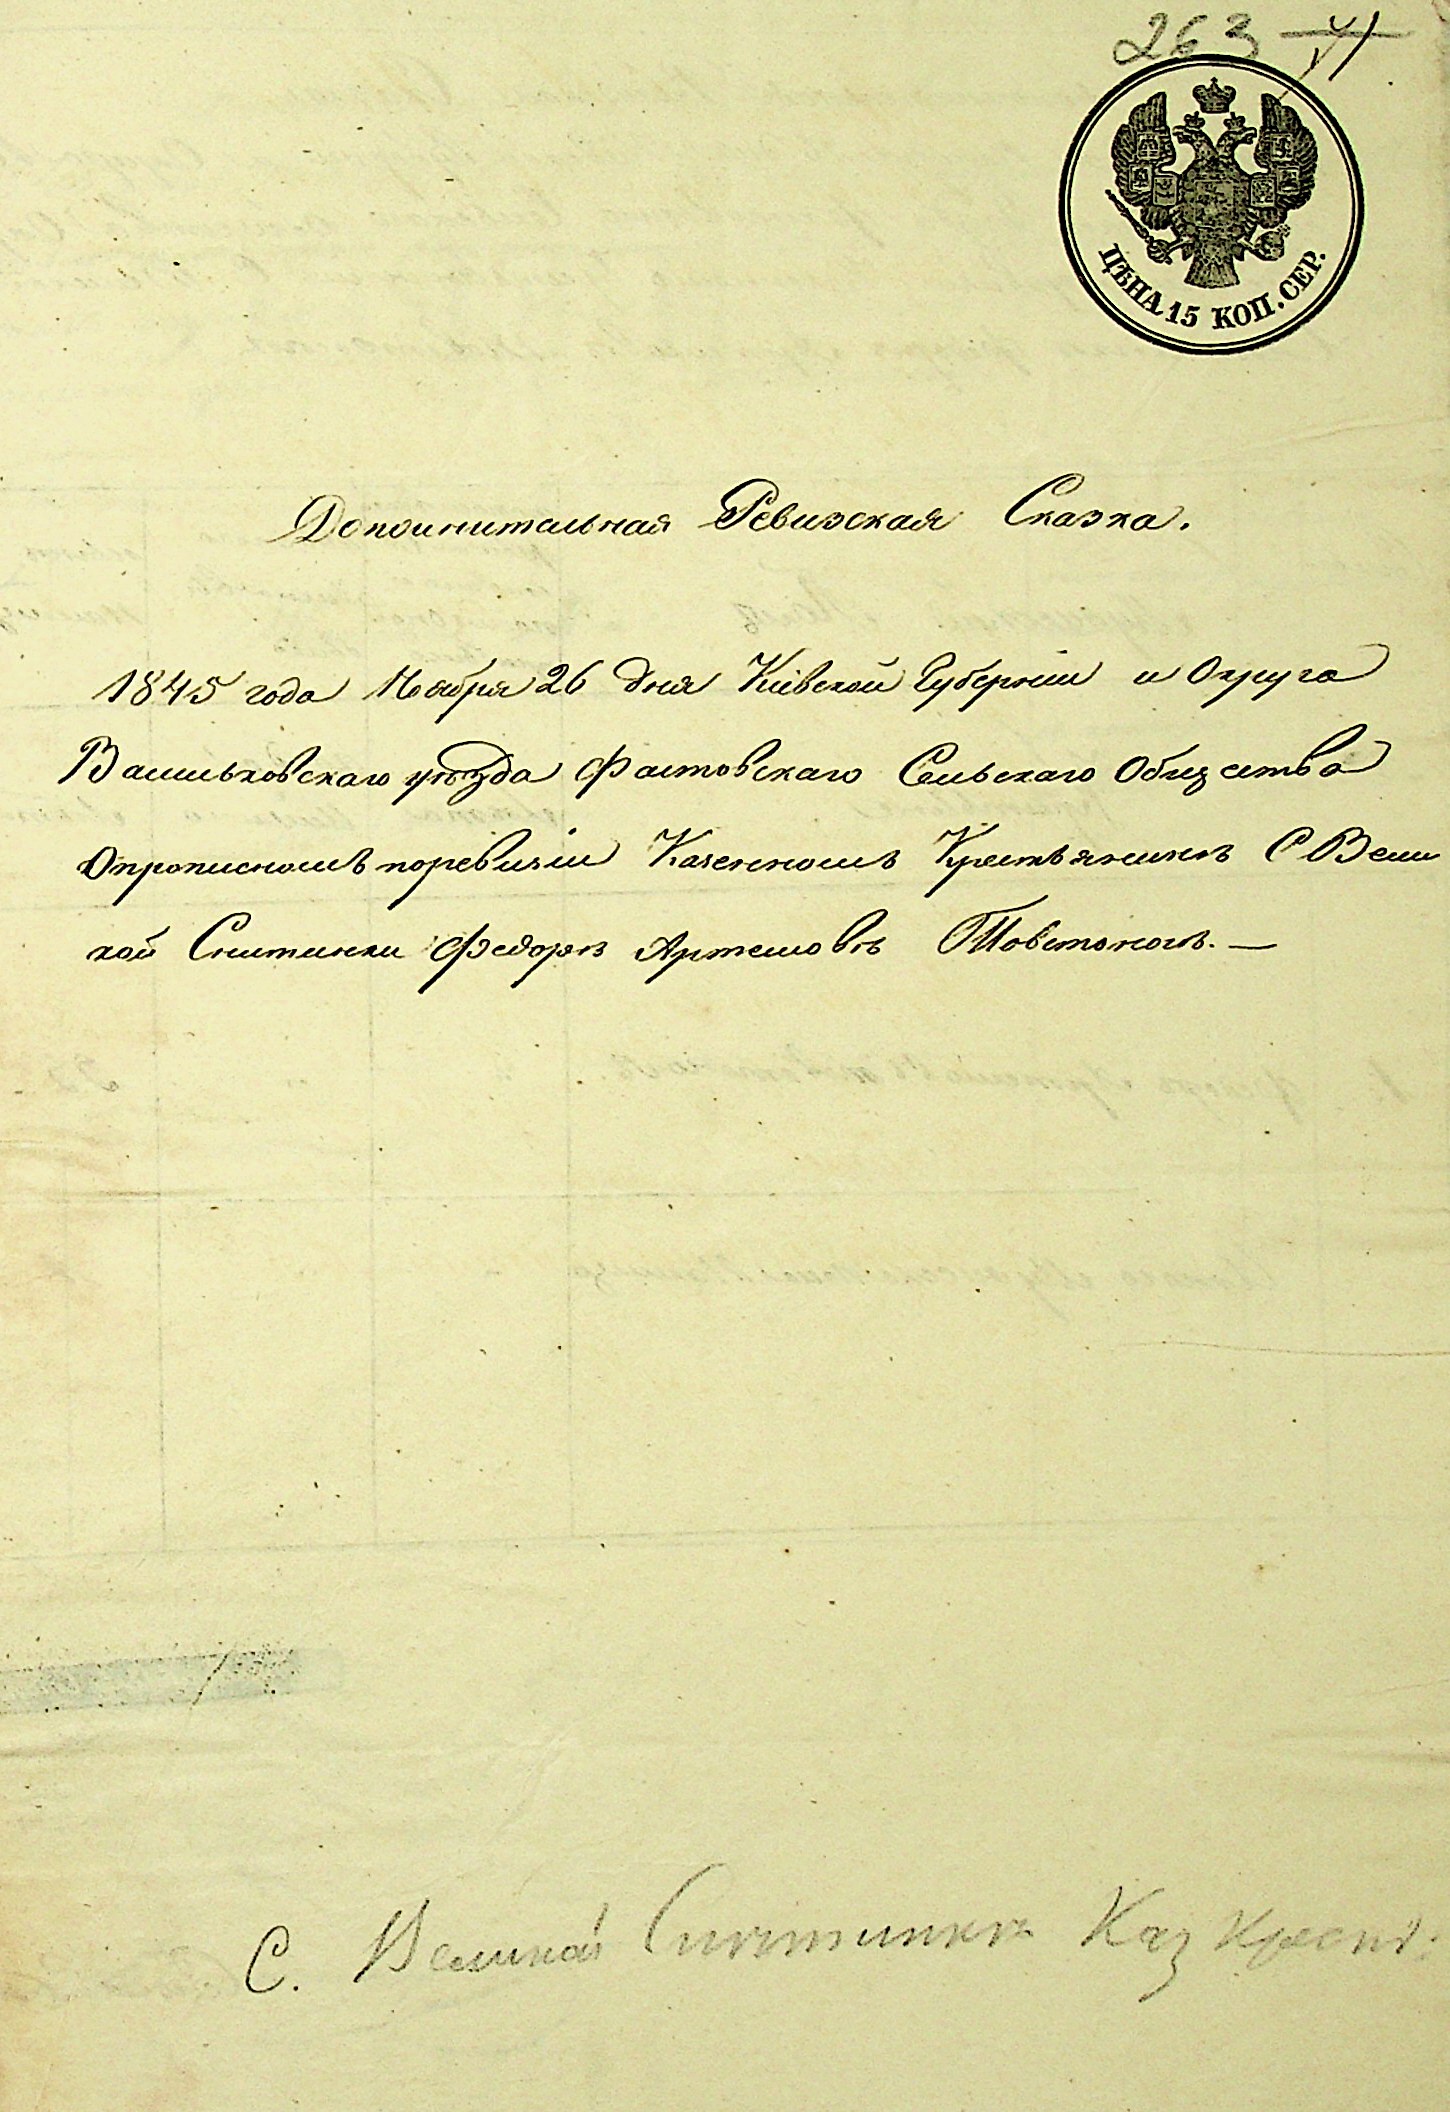 263
ЦѢНА 15 КОП. СЕР.
Дополнительная Ревизская Сказка.
1845 года Ноября 26 дня Кіевской Губерніи и Округа
Васильковскаго уѣзда Фастовскаго Сельскаго Общества
опрописномъ поревизіи Казенномъ Крестьянинѣ С Вели
кой Снитинки Федорѣ Артемовѣ Товстоногѣ. —
С. Великая Снитинка Каз Крест: